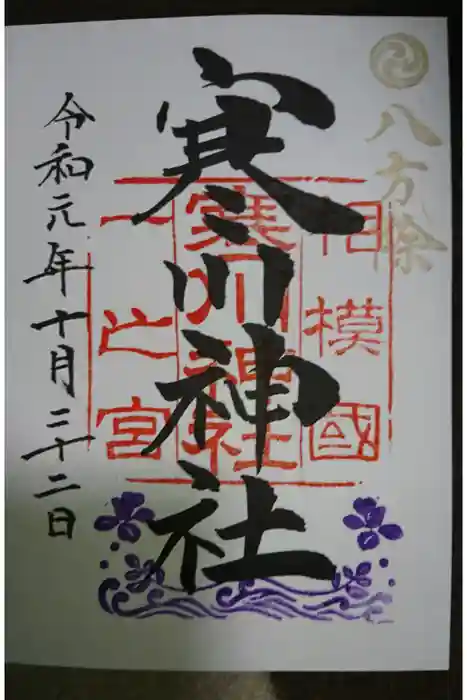 八方除
相模國
寒川神社
一之宮
寒川神社
令和元年十月二十二日